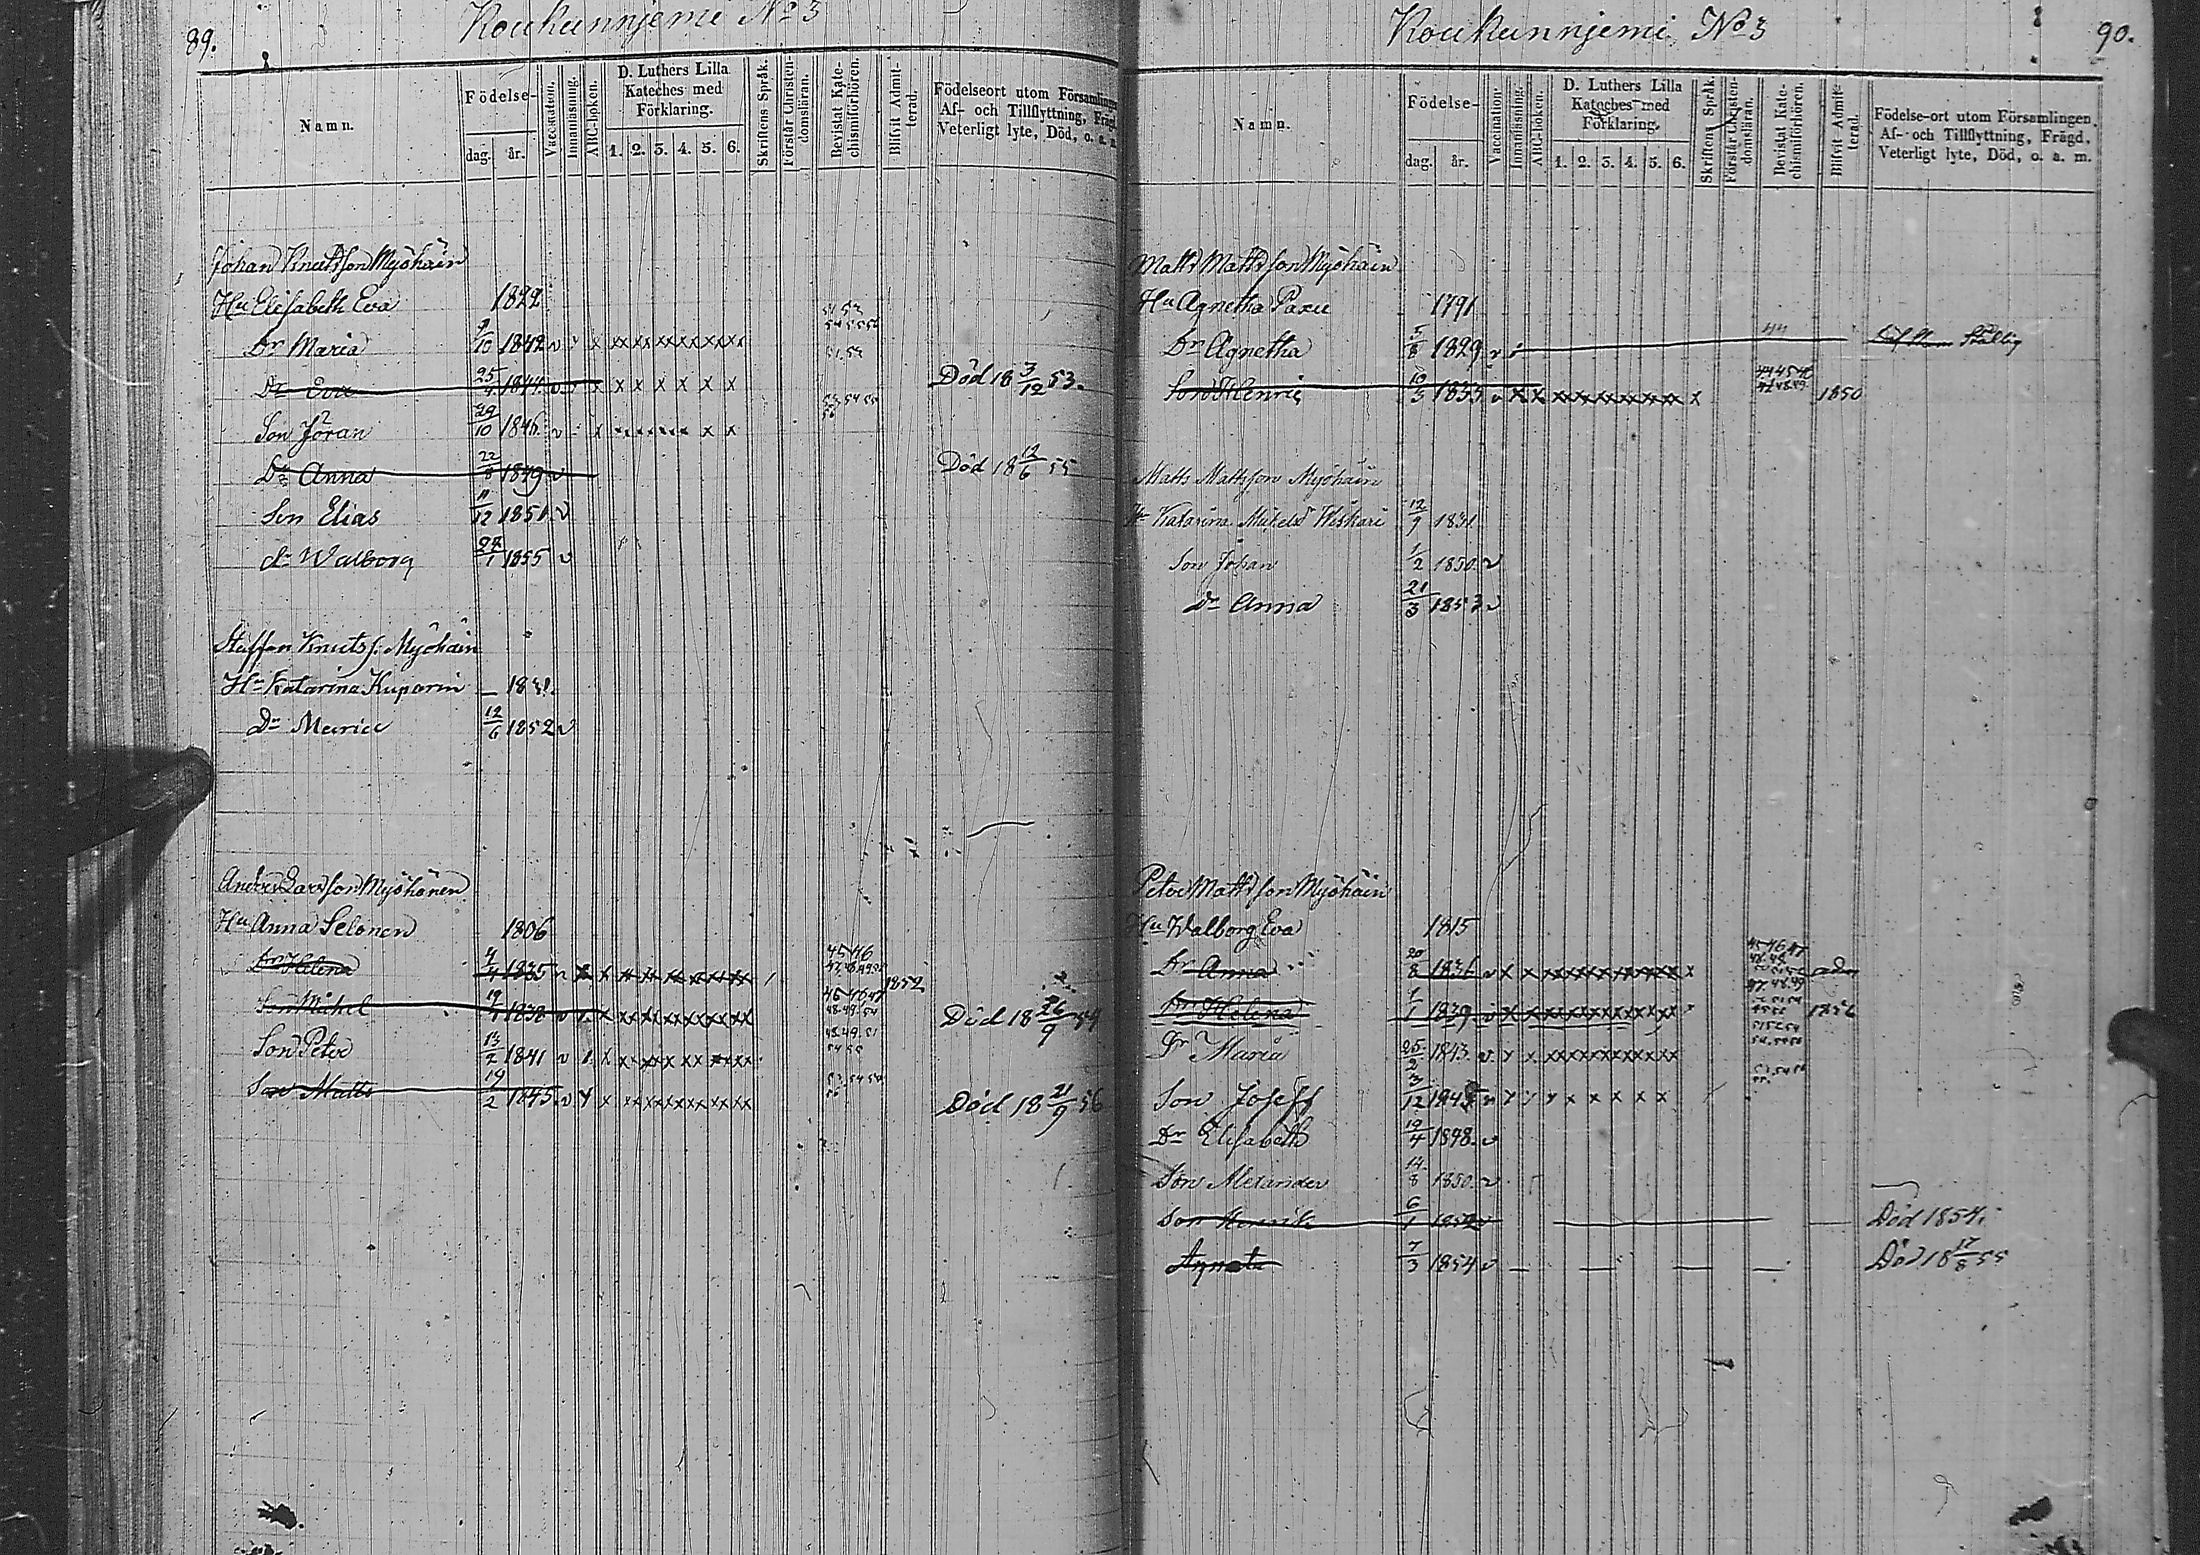 89.
Koukunnjemi No 3
Namn.
Födelse-
dag. år.
Vaccination.
Innanläsning.
ABC-boken.
D. Luthers Lilla
Kateches med
Förklaring.
1. 2. 3. 4. 5. 6.
Skriftens Språk.
Förstår Christen-
domsläran.
Bevistat Kate-
chismiförhören.
Blifvit Admit-
terad.
Födelseort utom Församlingen
Af- och Tillflyttning, Frägd,
Veterligt lyte, Död, o. a. m.
Johan Knutsson Myöhäin
Hu Elisabeth Eva 1822
Dr Maria 9/10 1842 v x x x x x x x x x x x
Dr Eva 25/4 1844 v x x x x x x Död 18 3/12 53.
Son Jöran 29/10 1846. v x x x
Dr Anna 22/8 1849 v Död 18 12/6 55
Son Elias 11/12 1851. v
dr Walborg 1855 v
Staffan Knuts s: Myöhäin
Hu Katarina Kuparin — 1831.
Dr Maria 12/6 1852 v
Anders Larsson Myöhänen
Hu Anna Selonen 1806
Dr Helena 1835 v x x x x x x x x 1852
Son Mickel 1838 v x x x x x x x Död 18 26/9 54
Son Peter 13/2 1841 v x x x x x x x
Son Matts 19/2 1845. v x x x x x x x x Död 18 21/9 56
90.
Koukunnjemi No 3
Namn.
Födelse-
dag. år.
Vaccination.
Innanläsning.
ABC-boken.
D. Luthers Lilla
Kateches med
Förklaring.
1. 2. 3. 4. 5. 6.
Skriftens Språk.
Förstår Christen-
domsläran.
Bevistat Kate-
chismiförhören.
Blifvit Admit-
terad.
Födelse-ort utom Församlingen.
Af- och Tillflyttning, Frägd,
Veterligt lyte, Död, o. a. m.
Matts Mattsson Myöhäin
Hu Agnetha Paxu 1791
Dr Agnetha 5/8 1829 v 44
Son Henric 1833 v x x x x x x x x x x 1850
Matts Mattsson Myöhäin
Hu Katarina Mickelsd Wiskari 12/9 1831
Son Johan 1/2 1850. v
Dr Anna 21/3 1853 v
Peter Mattsson Myöhäin
Hu Walborg Eva 1815
Dr Anna 20/8 1836 v x x x x x x x x x x adm
Dr Helena 1/1 1839 v x x x x x x x x x
Dr Maria 25/2 1843. v x x x x x x x x x
Son Josef 3/12 v x x x x x x
Dr Elisabeth 19/4 1848. v
Son Alexander 14/8 1850. v
Son Henrik 6/1 1852 v Död 1854.
Agneta 7/3 1854 v Död 18 17/8 55